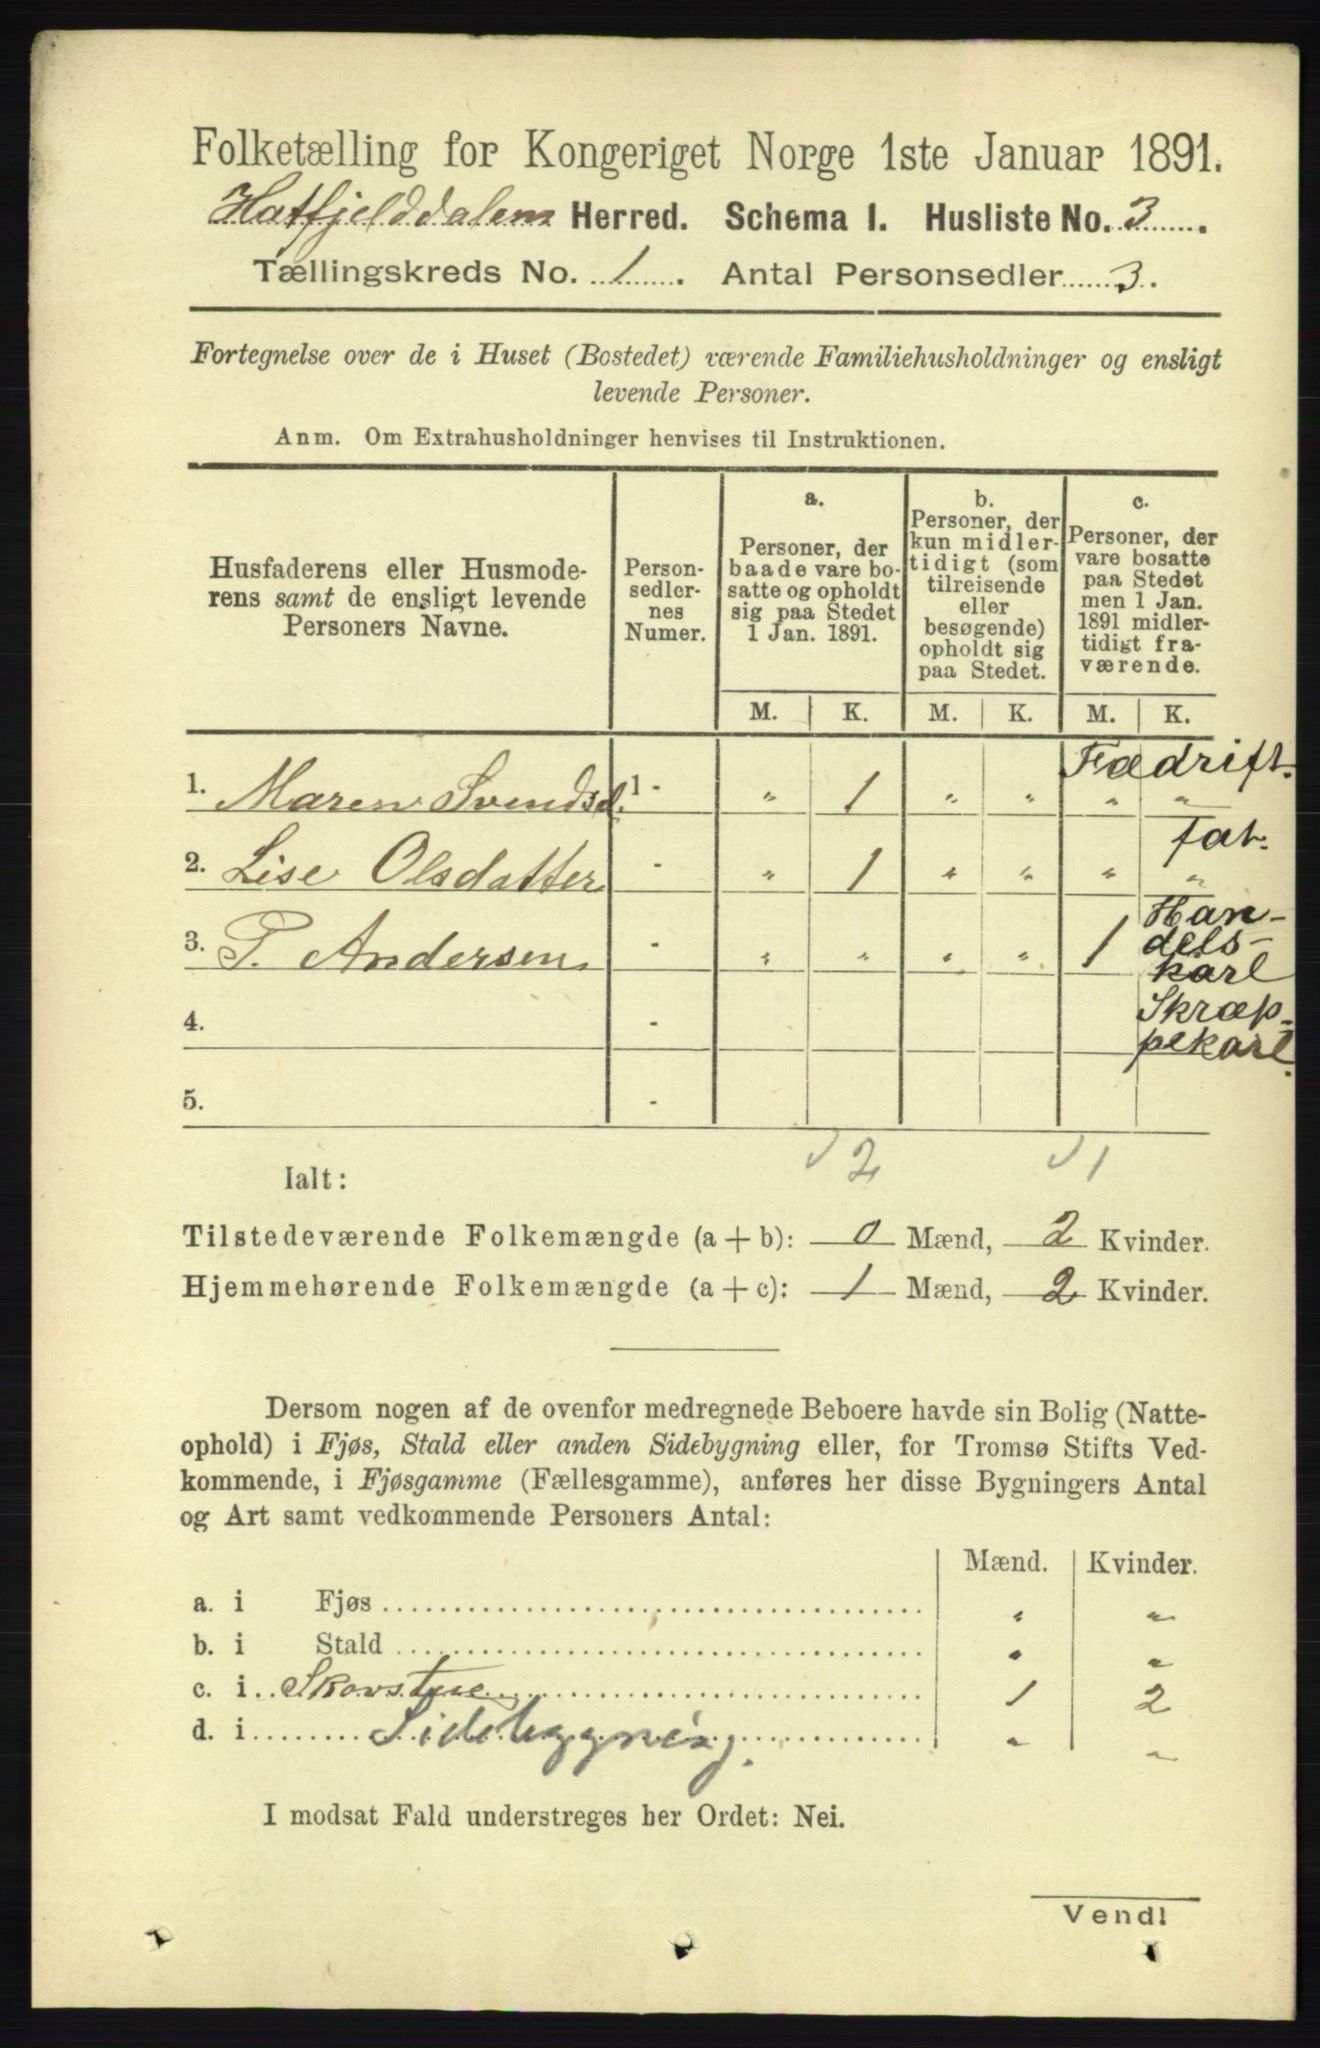 Folketælling for Kongeriget Norge 1ste Januar 1891.
Hatfjelddalens Herred. Schema I. Husliste No. 3.
Tællingskreds No. 1. Antal Personsedler 3.
Fortegnelse over de i Huset (Bostedet) værende Familiehusholdninger og ensligt
levende Personer.
Anm. Om Extrahusholdninger henvises til Instruktionen.
Husfaderens eller Husmode-
rens samt de ensligt levende
Personers Navne.
Person-
sedler-
nes
Numer.
a.
Personer, der
baade vare bo-
satte og opholdt
sig paa Stedet
1 Jan. 1891.
b.
Personer, der
kun midler-
tidigt (som
tilreisende
eller
besøgende)
opholdt sig
paa Stedet.
c.
Personer, der
vare bosatte
paa Stedet
men 1 Jan.
1891 midler-
tidigt fra-
værende.
M. K. M. K. M. K.
1. Maren Svendsd. 1 - „ 1 „ „ „ „ Fædrift.
2. Lise Olsdatter - „ 1 „ „ „ „ fat.
3. P. Andersen - „ „ „ „ 1 Han-
dels-
karl
4. - Skræp-
pekarl.
5. -
2 1
Ialt:
Tilstedeværende Folkemængde (a + b): 0 Mænd, 2 Kvinder.
Hjemmehørende Folkemængde (a + c): 1 Mænd, 2 Kvinder.
Dersom nogen af de ovenfor medregnede Beboere havde sin Bolig (Natte-
ophold) i Fjøs, Stald eller anden Sidebygning eller, for Tromsø Stifts Ved-
kommende, i Fjøsgamme (Fællesgamme), anføres her disse Bygningers Antal
og Art samt vedkommende Personers Antal:
Mænd. Kvinder.
a. i Fjøs „ „
b. i Stald „ „
c. i Skovstue 1 2
d. i Sidebygning. „ „
I modsat Fald understreges her Ordet: Nei.
Vend!